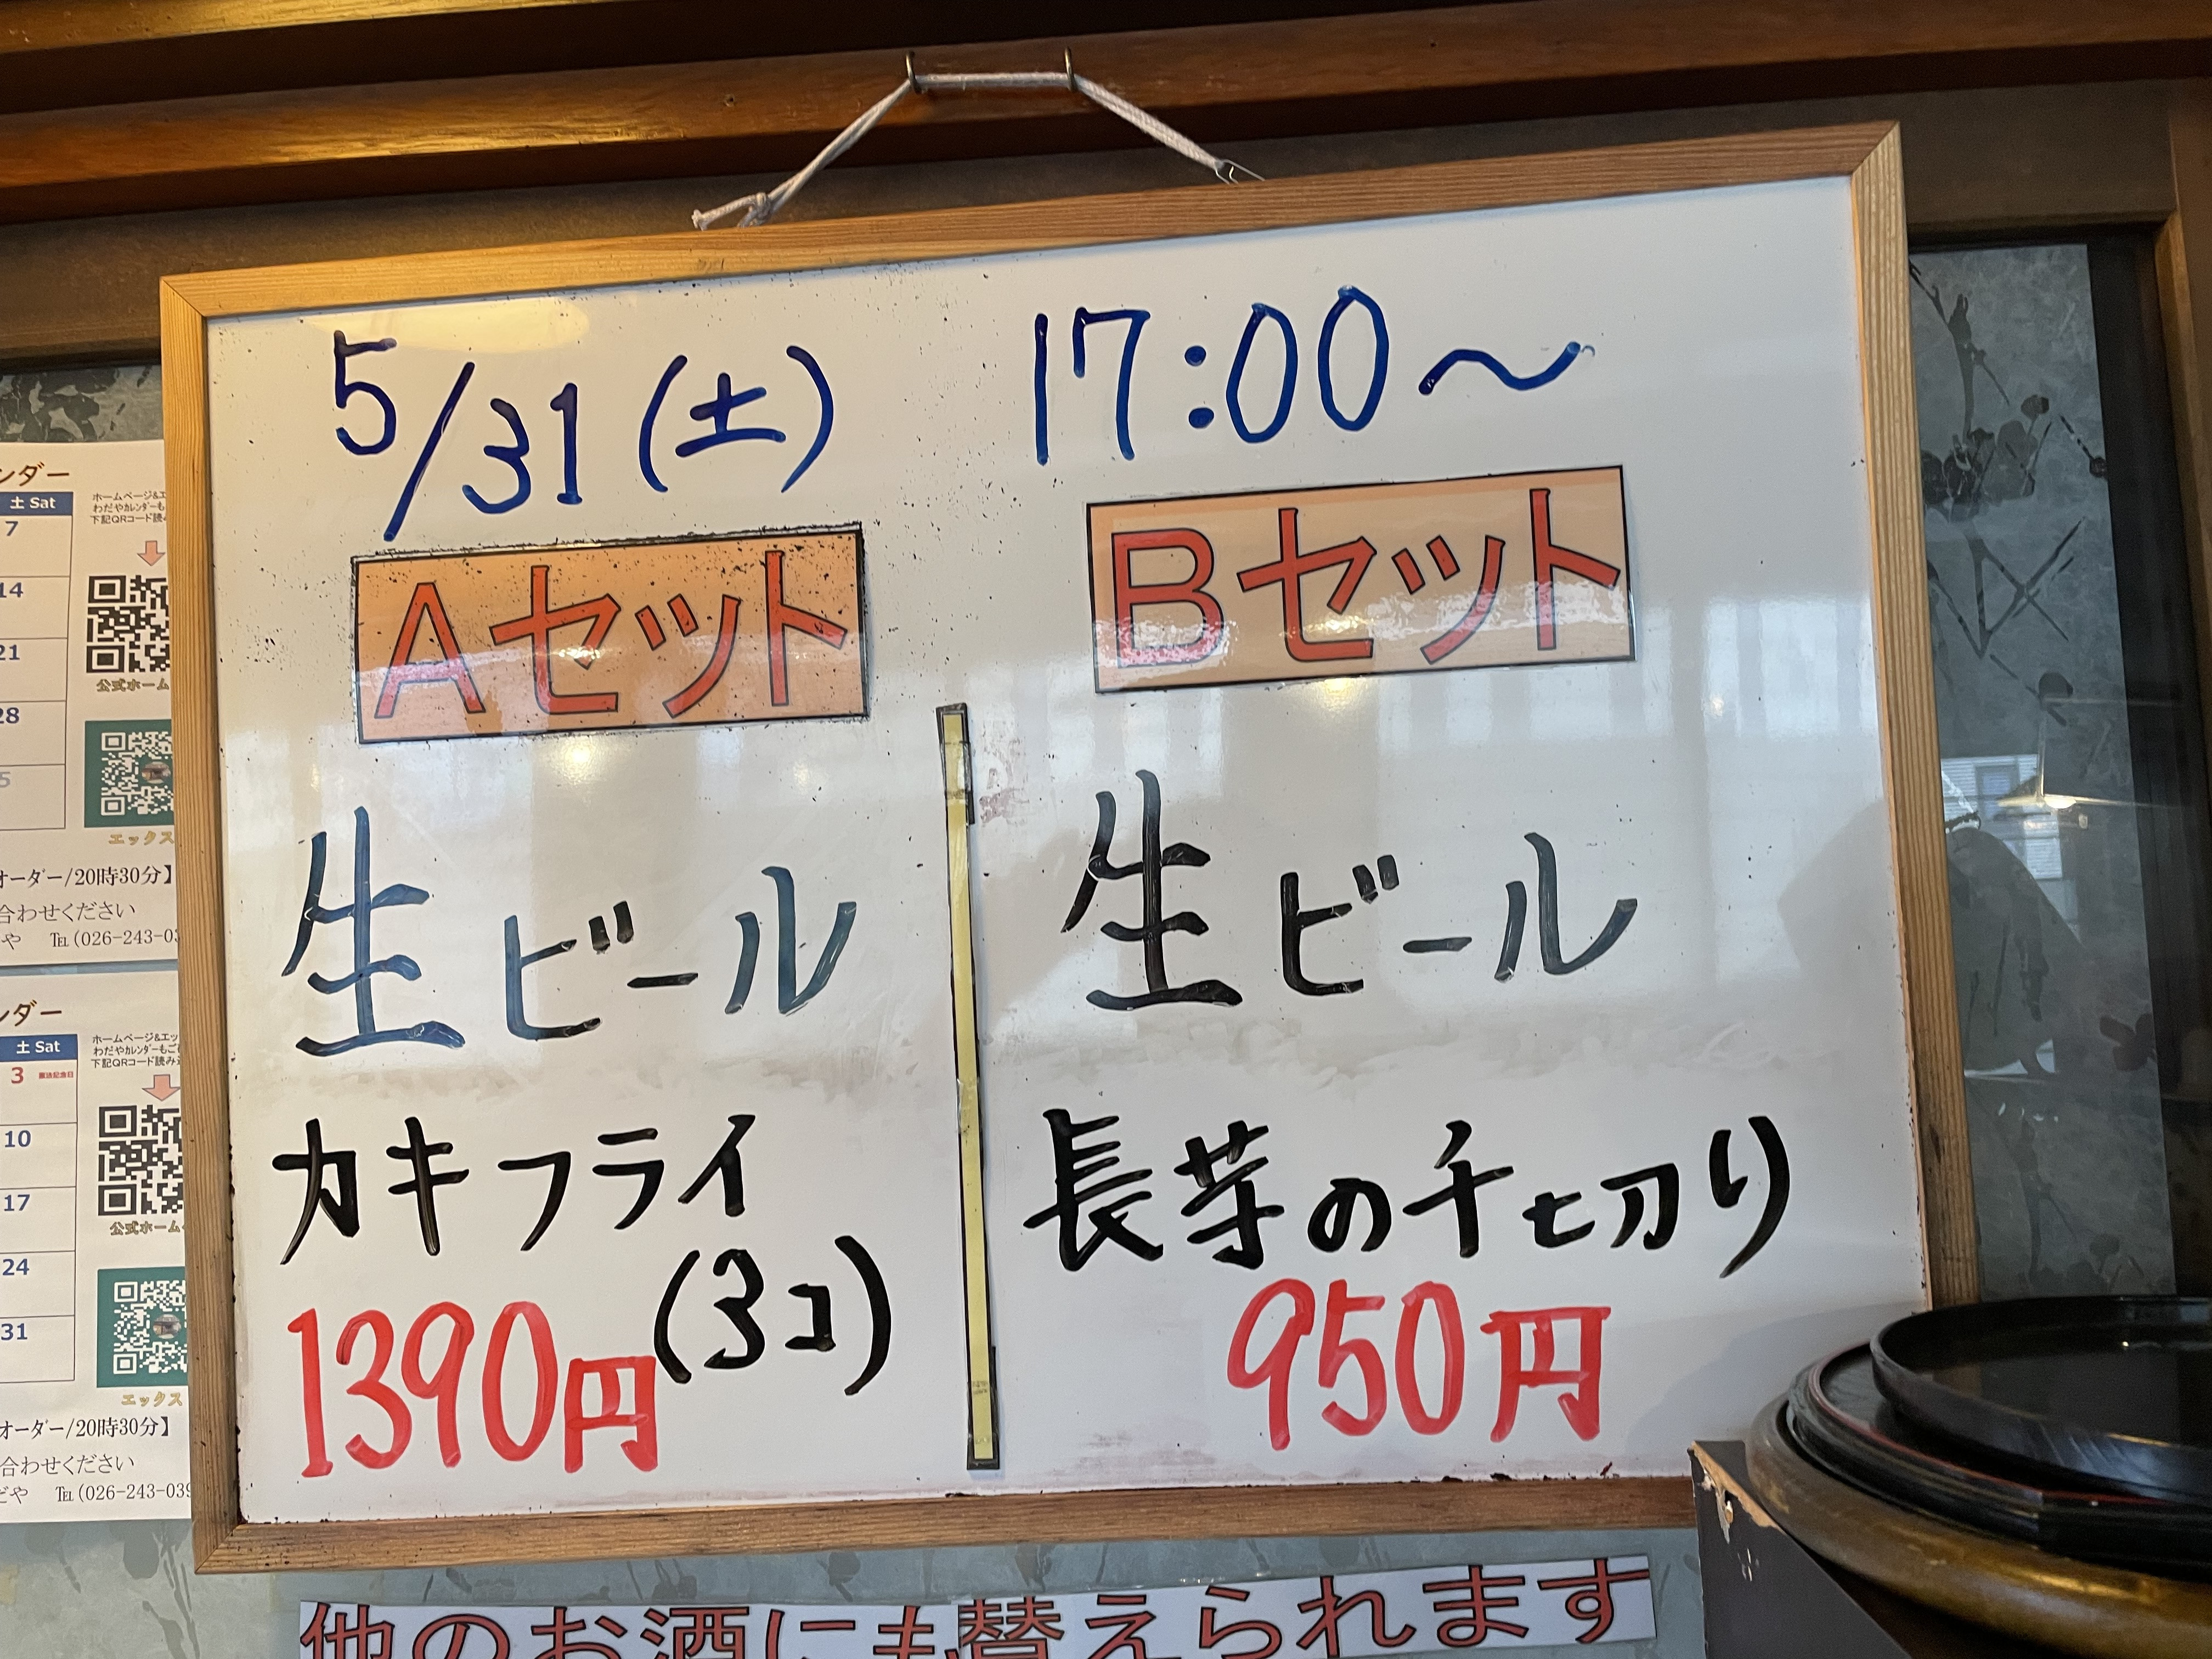 5/31(土) 17:00～
Aセット
Bセット
生ビール
カキフライ
(3コ)
1390円
生ビール
長芋の千切り
950円
他のお酒にも替えられます
ンダー
土 Sat
7
14
21
28
5
ホームページ&エ
わだやカレンダーも
下記QRコード読
公式ホーム
エックス
オーダー/20時30分】
合わせください
や ℡(026-243-03
ンダー
土 Sat
3 憲法記念日
10
17
24
31
ホームページ&エッ
わだやカレンダーもご
下記QRコード読み
公式ホーム
エックス
オーダー/20時30分】
合わせください
だや ℡(026-243-039